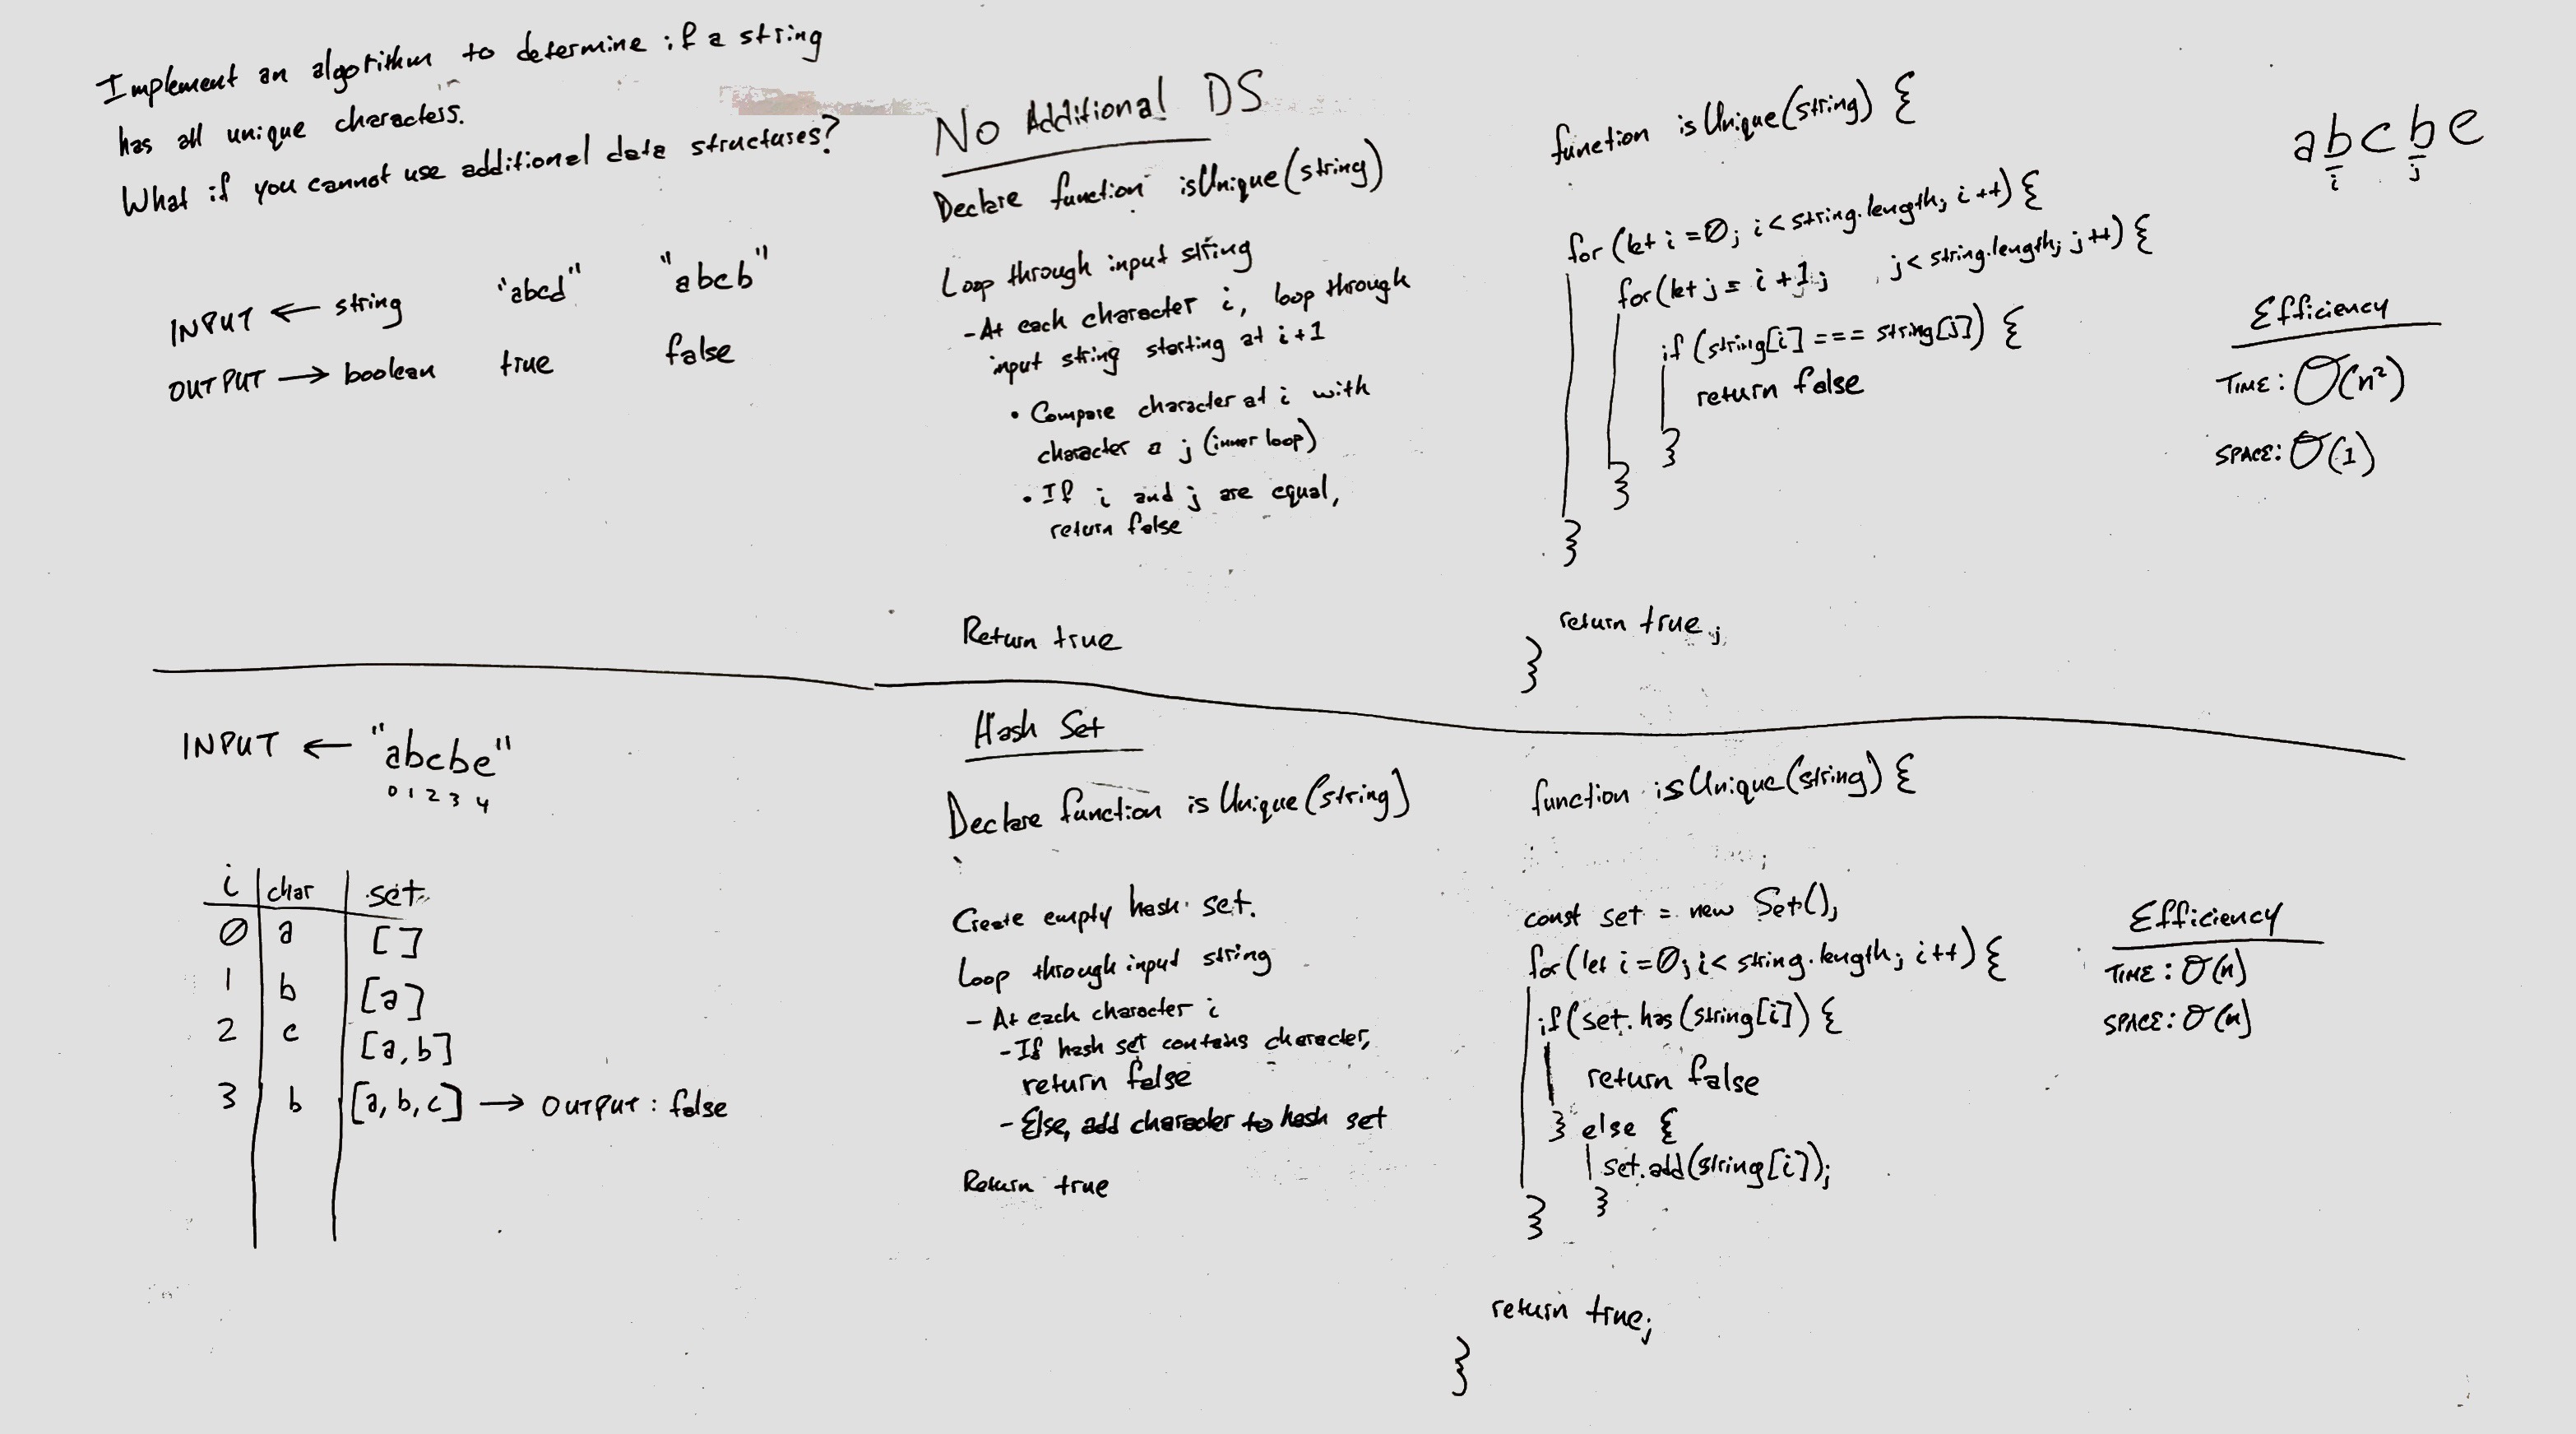 Implement an algorithm to determine if a string
has all unique characters.
What if you cannot use additional data structures?
INPUT ← string "abcd" "abcb"
OUTPUT → boolean true false
No Additional DS
Declare function isUnique(string)
Loop through input string
- At each character i, loop through
input string starting at i+1
• Compare character at i with
character @ j (inner loop)
• If i and j are equal,
return false
Return true
function isUnique(string) {
for (let i = 0; i < string.length; i++) {
for (let j = i + 1; j < string.length; j++) {
if (string[i] === string[j]) {
return false
}
}
}
return true;
}
abcbe
i j
Efficiency
TIME: O(n²)
SPACE: O(1)
INPUT ← "abcbe"
0 1 2 3 4
i char set
0 a []
1 b [a]
2 c [a,b]
3 b [a,b,c] → OUTPUT: false
Hash Set
Declare function isUnique(string)
Create empty hash set.
Loop through input string
- At each character i
- If hash set contains character,
return false
- Else, add character to hash set
Return true
function isUnique(string) {
const set = new Set();
for (let i = 0; i < string.length; i++) {
if (set.has(string[i]) {
return false
} else {
set.add(string[i]);
}
}
return true;
}
Efficiency
TIME: O(n)
SPACE: O(n)